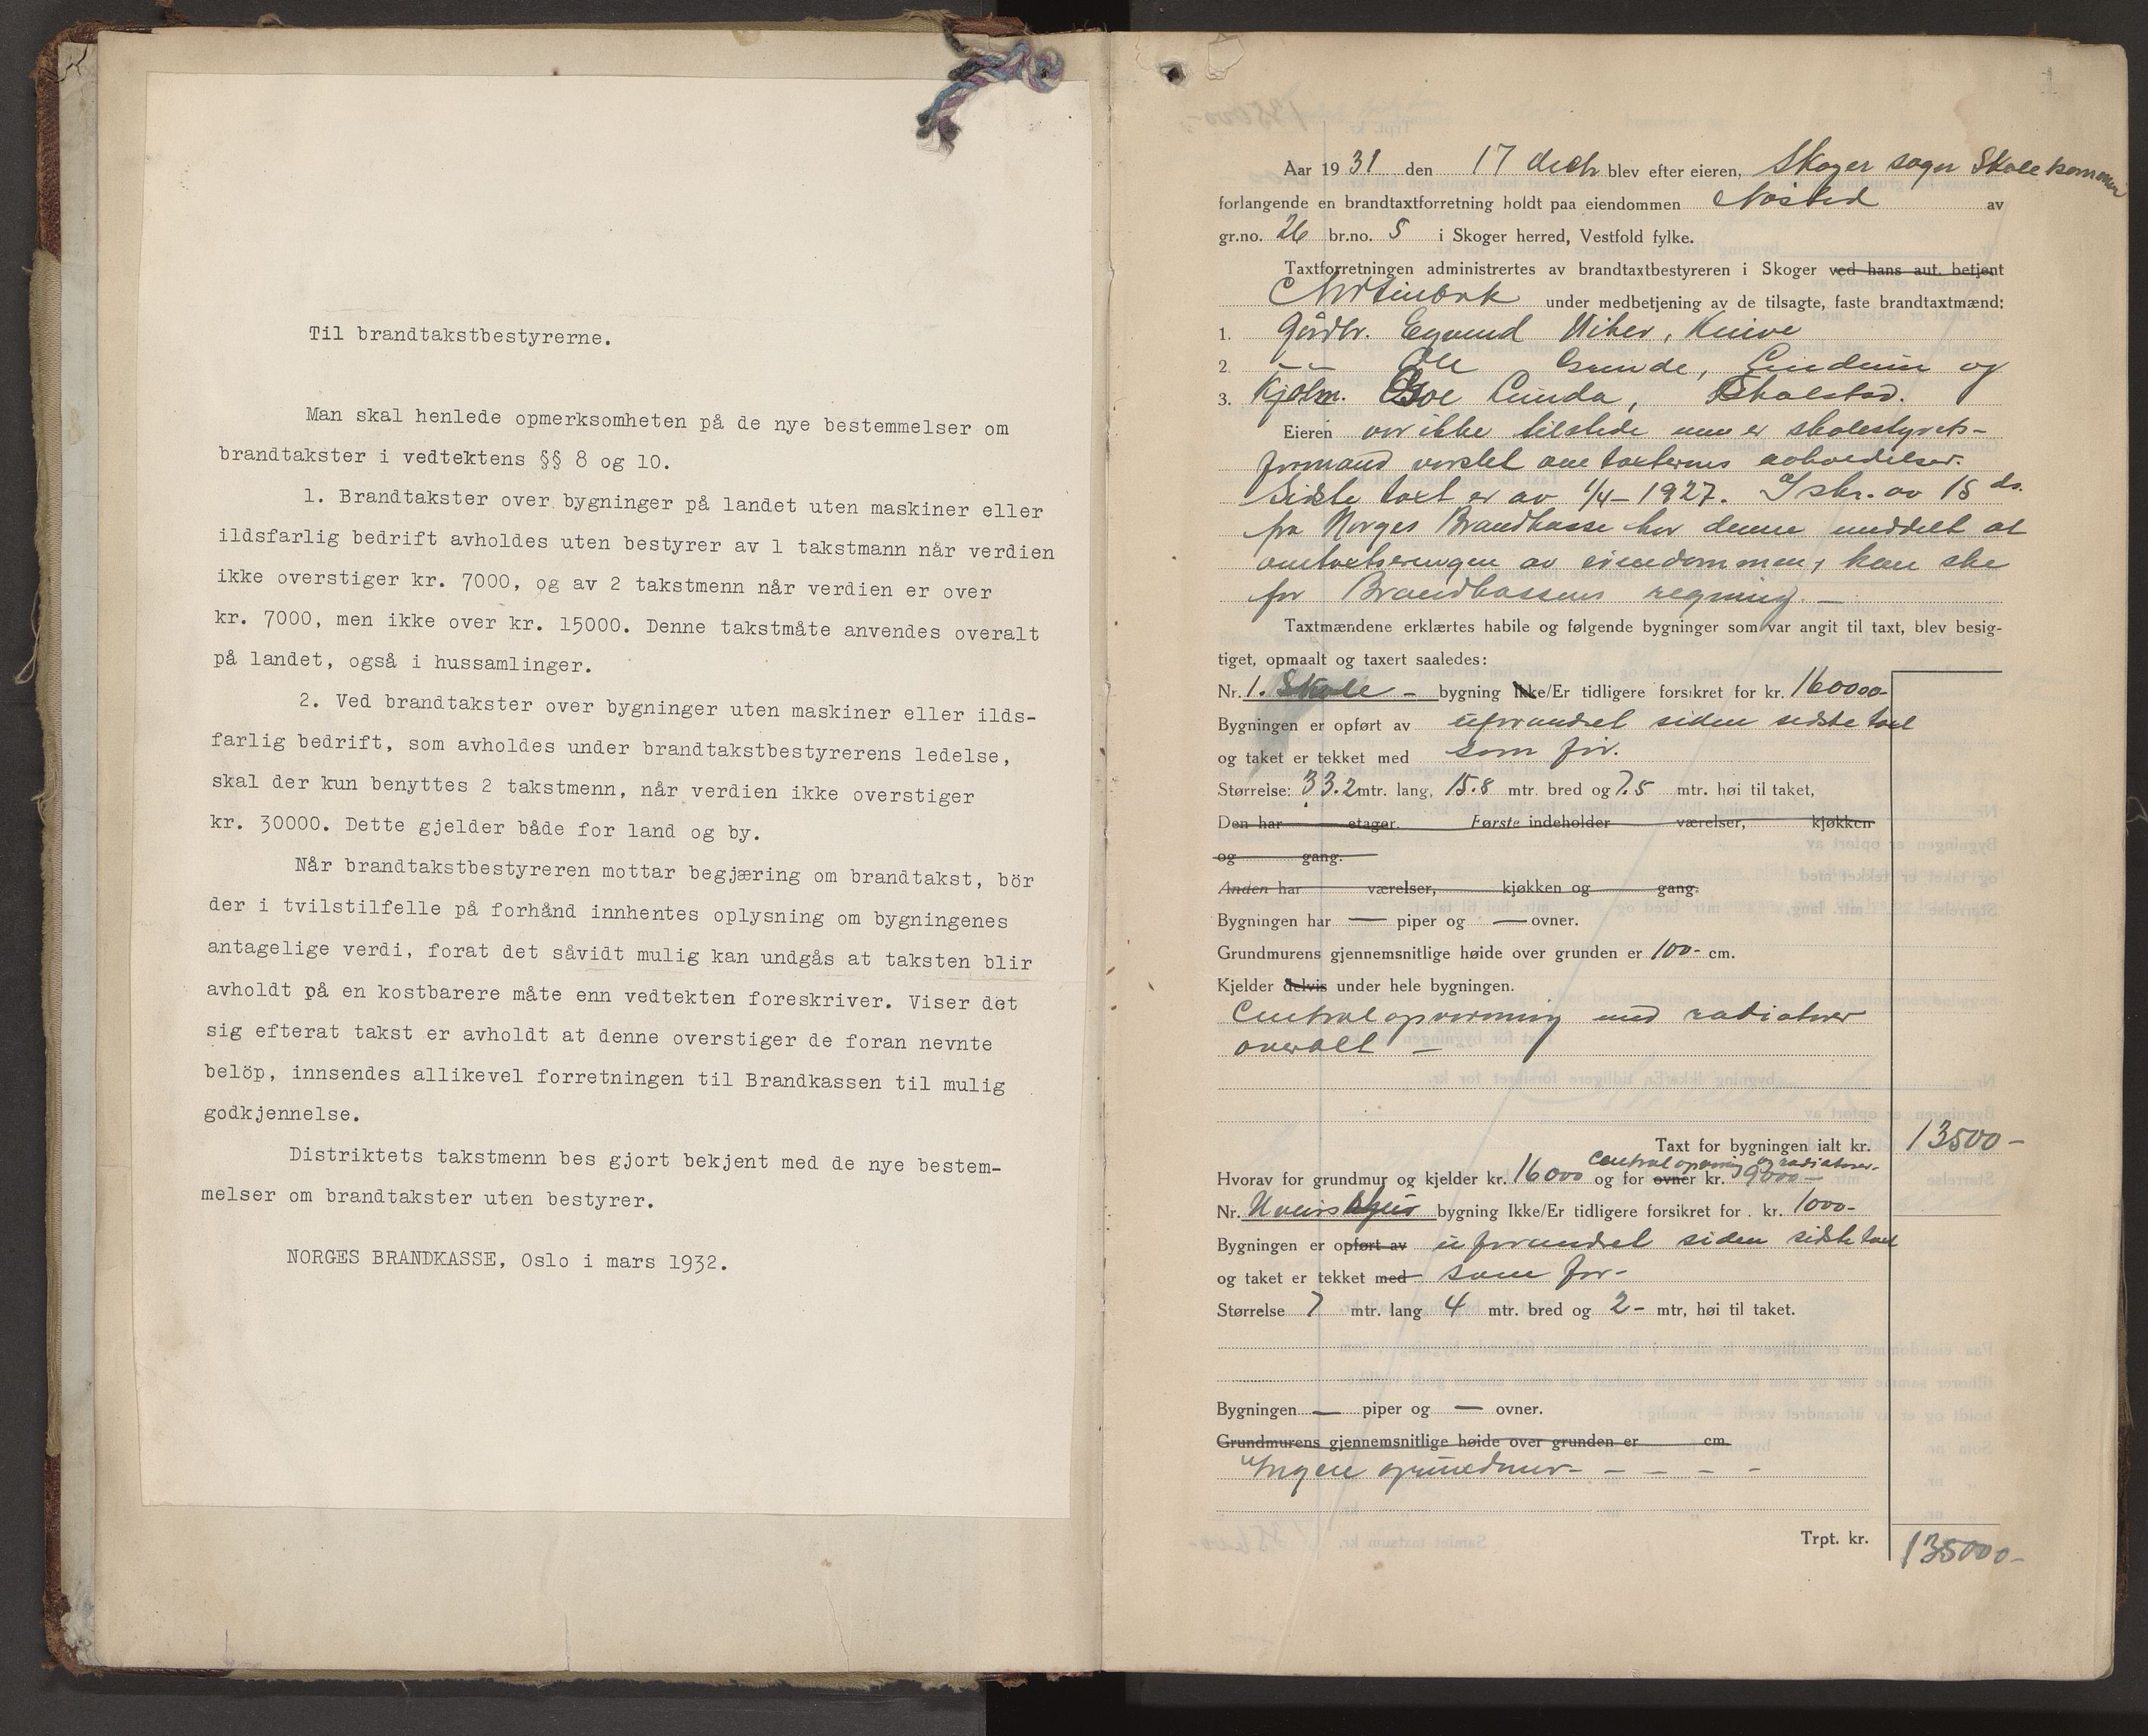 Til brandtakstbestyrerne.
Man skal henlede opmerksomheten på de nye bestemmelser om
brandtakster i vedtektens §§ 8 og 10.
1. Brandtakster over bygninger på landet uten maskiner eller
ildsfarlig bedrift avholdes uten bestyrer av 1 takstmann når verdien
ikke overstiger kr. 7000, og av 2 takstmenn når verdien er over
kr. 7000, men ikke over kr. 15000. Denne takstmåte anvendes overalt
på landet, også i hussamlinger.
2. Ved brandtakster over bygninger uten maskiner eller ilds-
farlig bedrift, som avholdes under brandtakstbestyrerens ledelse,
skal der kun benyttes 2 takstmenn, når verdien ikke overstiger
kr. 30000. Dette gjelder både for land og by.
Når brandtakstbestyreren mottar begjæring om brandtakst, bör
der i tvilstilfelle på forhånd innhentes oplysning om bygningenes
antagelige verdi, forat det såvidt mulig kan undgås at taksten blir
avholdt på en kostbarere måte enn vedtekten foreskriver. Viser det
sig efterat takst er avholdt at denne overstiger de foran nevnte
belöp, innsendes allikevel forretningen til Brandkassen til mulig
godkjennelse.
Distriktets takstmenn bes gjort bekjent med de nye bestem-
melser om brandtakster uten bestyrer.
NORGES BRANDKASSE, Oslo i mars 1932.
1
Aar 1931 den 17 decbr blev efter eieren, Skoger sogn Skolekommun
forlangende en brandtaxtforretning holdt paa eiendommen Nøsted av
gr.no. 26 br.no. 5 i Skoger herred, Vestfold fylke.
Taxtforretningen administrertes av brandtaxtbestyreren i Skoger ved hans aut. betjent
under medbetjening av de tilsagte, faste brandtaxtmænd:
1. Gårdbr. Eyvind
2. -"- Ole Grunde, Lindum og
3. Kjøbm. Lunda, Skalstad.
Eieren var ikke tilstede men er skolestyrets-
formand varslet om taxternes avholdelse.
Sidste taxt er av 1/4-1927. I skr. av 15 ds.
fra Norges Brandkasse har denne meddelt at
omtaxeringen av eiendommen, kan ske
for Brandkassens regning. -
Taxtmændene erklærtes habile og følgende bygninger som var angit til taxt, blev besig-
tiget, opmaalt og taxert saaledes:
Nr. 1. Skole - bygning Ikke/Er tidligere forsikret for kr. 160000-
Bygningen er opført av uforandret siden sidste taxt
og taket er tekket med som før.
Størrelse: 33.2 mtr. lang, 15.8 mtr. bred og 7.5 mtr. høi til taket,
Den har etager. Første indeholder værelser, kjøkken
og gang.
Anden har værelser, kjøkken og gang.
Bygningen har — piper og — ovner.
Grundmurens gjennemsnitlige høide over grunden er 100- cm.
Kjelder delvis under hele bygningen.
Centralopvarming med radiatorer
overalt -
Taxt for bygningen ialt kr. 13500-
Centralopvarming og radiatorer.
Hvorav for grundmur og kjelder kr. 16000 og for ovner kr. 9000-
Nr. Uveirsskjur bygning Ikke/Er tidligere forsikret for kr. 1000-
Bygningen er opført av uforandret siden sidste taxt
og taket er tekket med som før-
Størrelse 7 mtr. lang 4 mtr. bred og 2- mtr, høi til taket.
Bygningen — piper og — ovner.
Grundmurens gjennemsnitlige høide over grunden er cm.
Ingen grundmur- - - - -
Trpt. kr. 135000-